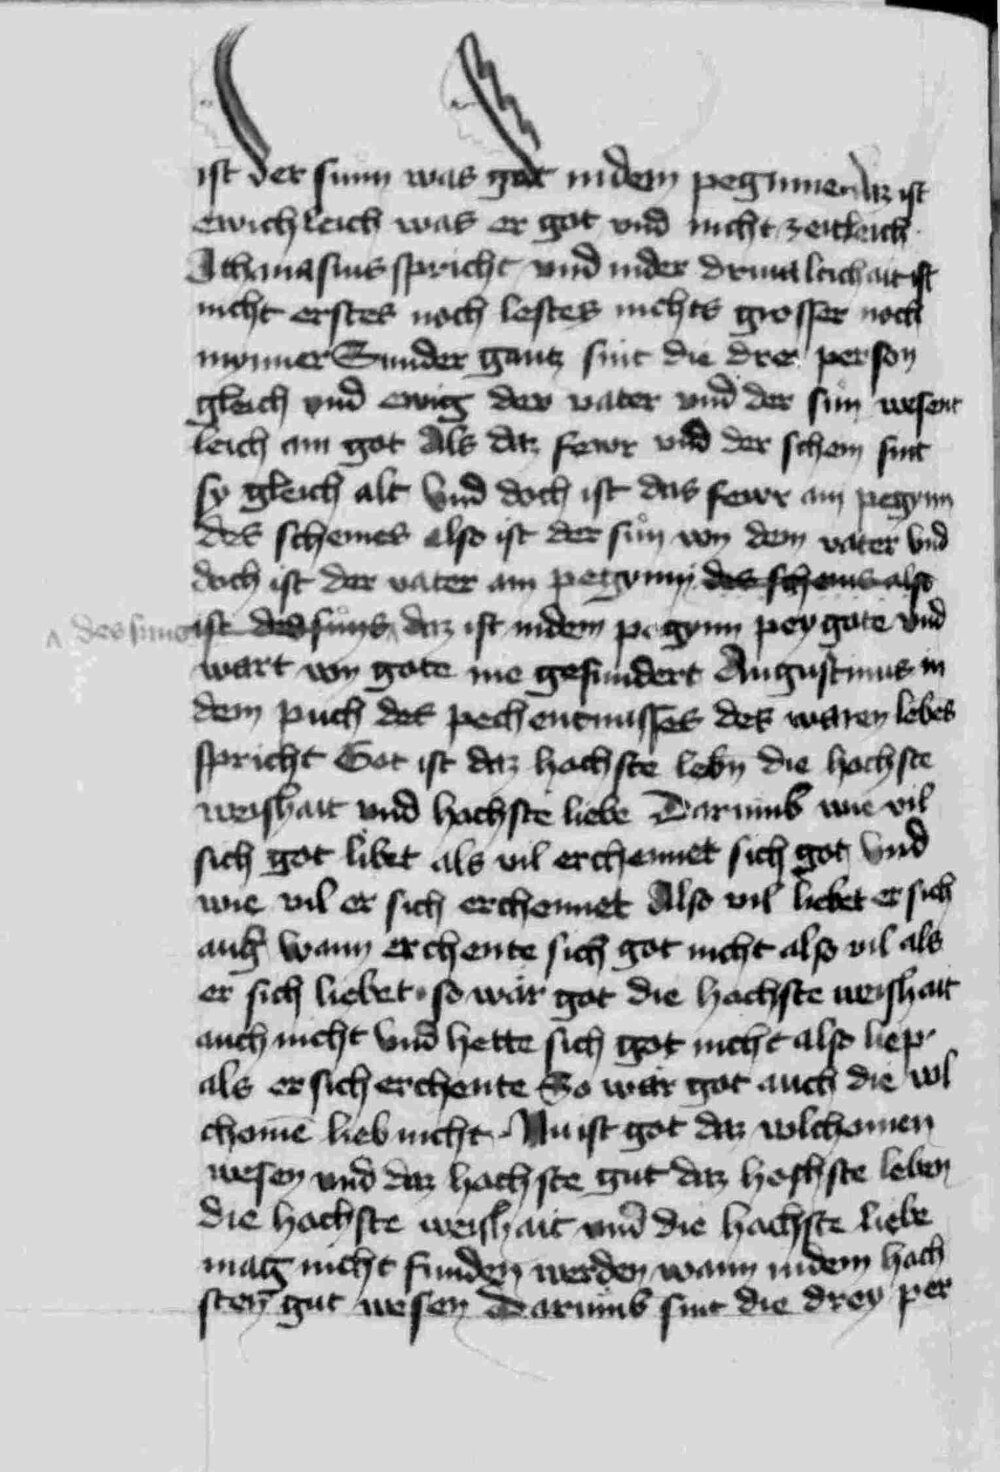 ist der sunn was got indem pegynnen daz ist
ewichleich was er got vnd nicht zeitleich
Athanasius spricht vnd inder driualtichait ist
nicht erstes noch lestes nichts grosser noch
mynner Sunder gantz sint die drei person
gleich vnd ewig der vater vnd der sůn wesent
leich ain got Als daz fewr vnd der schein sint
sy gleich alt Vnd doch ist das fewr ain pegynn
des scheines also ist der sůn von dem vater vnd
doch ist der vater ain pegynnn des scheins also
des suns ist des sůns daz ist indem pegynn pey gote vnd
wart von gote nie gesundert Augustinus in
dem puch der pechentnusses des waren lebes
spricht Got ist daz hochste lebn die hochste
weishait vnd hochste liebe Darumb wie vil
sich got libet als vil erchennet sich got Vnd
wie vil er sich erchennet Also vil liebet er sich
auch wann erchente sich got nicht also vil als
er sich liebet so wär got die hochste weishait
auch nicht vnd hette sich got nicht also liep
als er sich erchente So wär got auch die vol
chomē lieb nicht Nu ist got daz volchomen
wesen vnd daz hochste gut daz hochste leben
die hochste weishait vnd die hochste liebe
mag nicht funden werden wann indem hoch
sten gut wesen Darumb sint die drey per